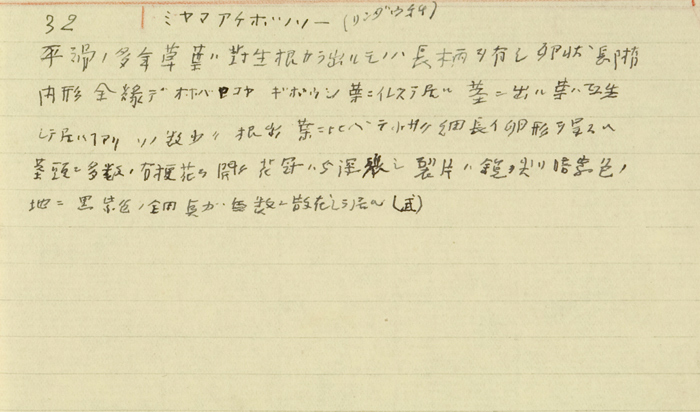 32 ミヤマアケボノソー (リンダウ科)
平滑ノ多年草葉ハ對生根カラ出ルモノハ長柄ヲ有シ卵状長楕
円形全縁デオホバコヤギボウシノ葉ニ似ステ居ル茎ニ出ル葉ハ互生
シテ居ルアリソノ数少ク根出葉ニ比ベテ小サク細長イ卵形ヲ呈スル
茎頭ニ多数ノ有梗花ヲ開ク花冠ハ5深裂シ裂片ハ鋭ク尖リ暗紫色ノ
地ニ黒紫色ノ細点ガ無数ニ散在シテ居ル(武)